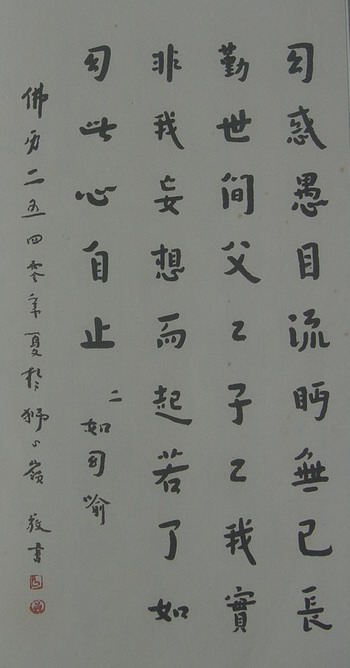 幻惑愚目流眄無已長
勤世間父々子々我實
非我妄想而起若了如
幻此心自止
二如幻喻
佛历二五四零年夏於獅嶺 敬書